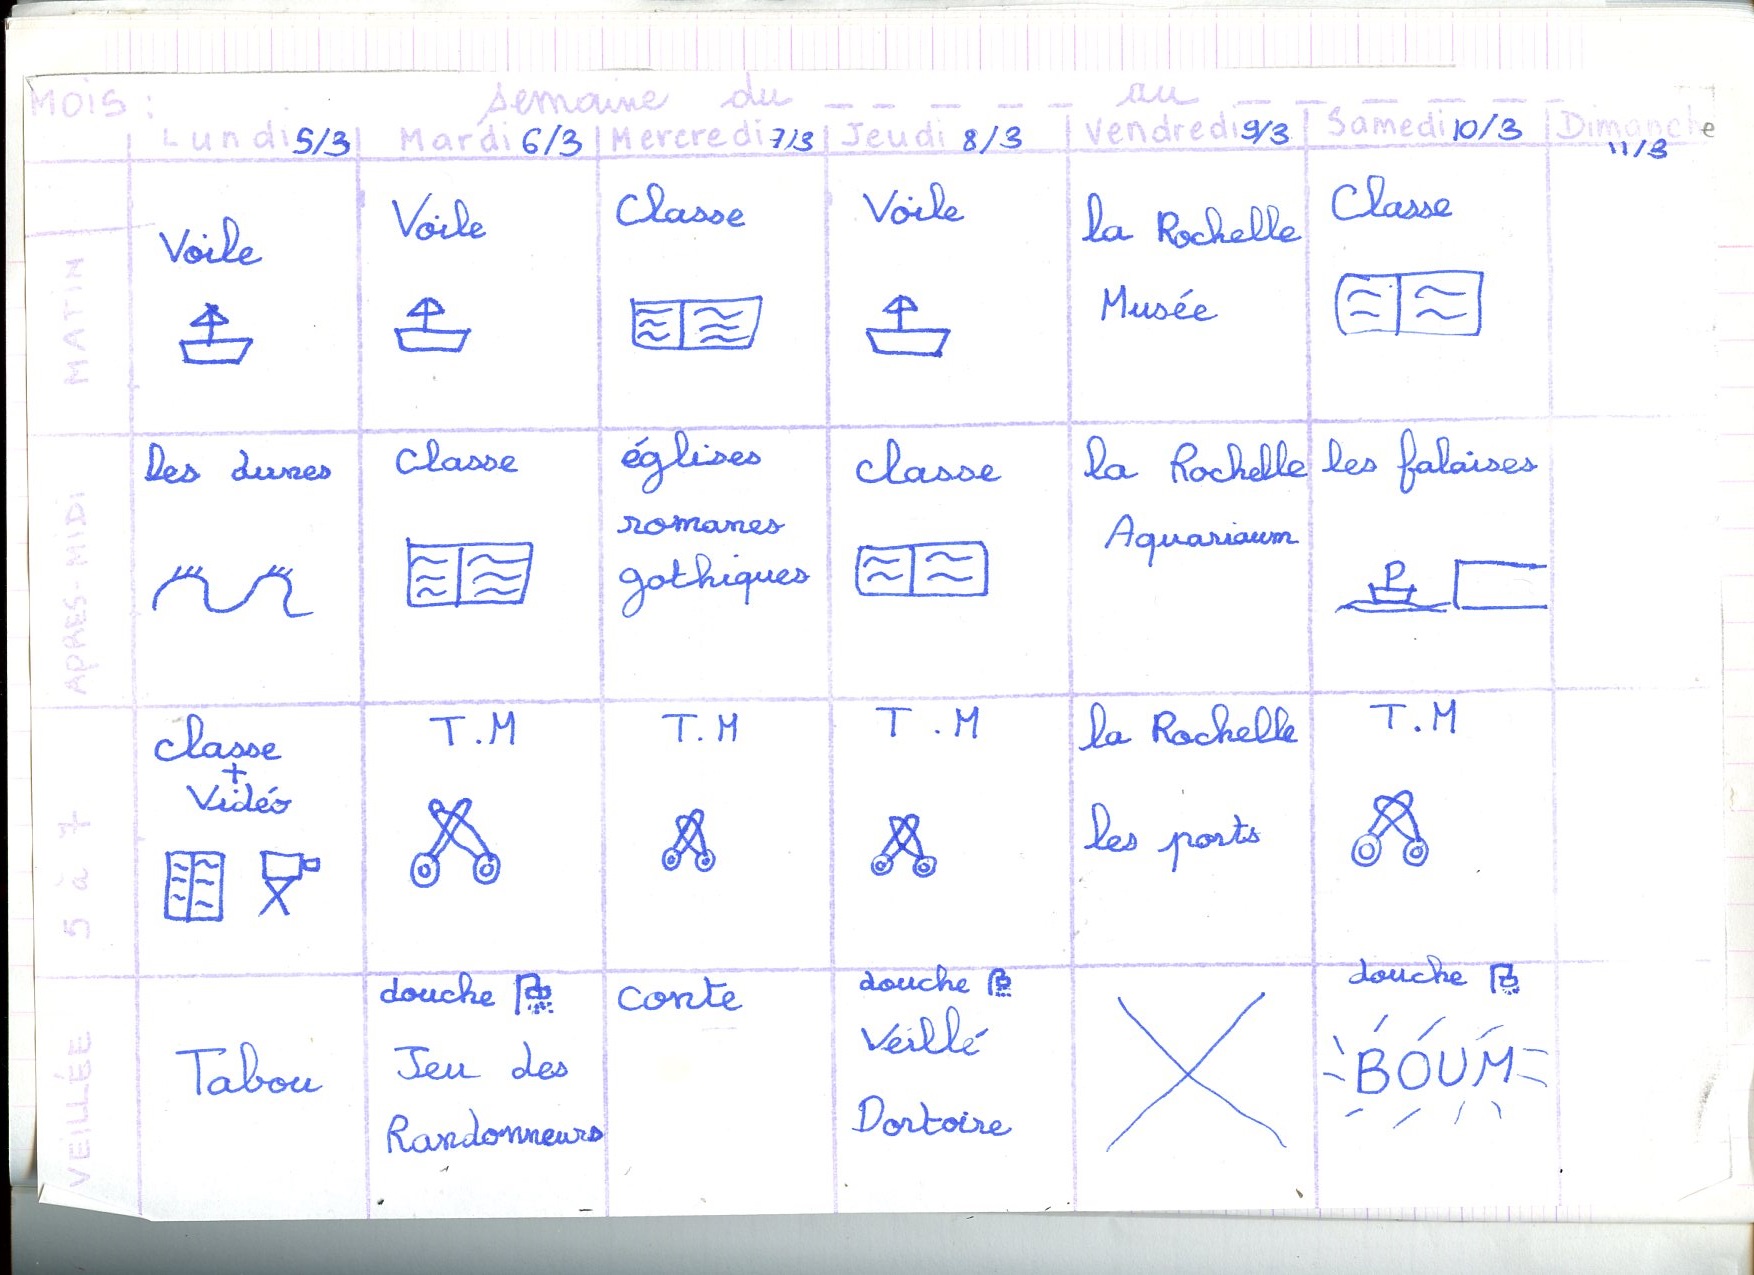 MOIS :
semaine du _ _ _ _ _ _ au _ _ _ _ _ _
Lundi 5/3 Mardi 6/3 Mercredi 7/3 Jeudi 8/3 Vendredi 9/3 Samedi 10/3 Dimanche 11/3
MATIN
Voile
Voile
Classe
Voile
la Rochelle
Musée
Classe
APRES-MIDI
Les dunes
Classe
églises
romanes
gothiques
classe
la Rochelle
Aquariaum
les falaises
5 à 7
classe
+
Vidéo
T.M
T.M
T.M
la Rochelle
les ports
T.M
VEILLÉE
Tabou
douche
Jeu des
Randonneurs
conte
douche
Veillé
Dortoire
douche
BOUM